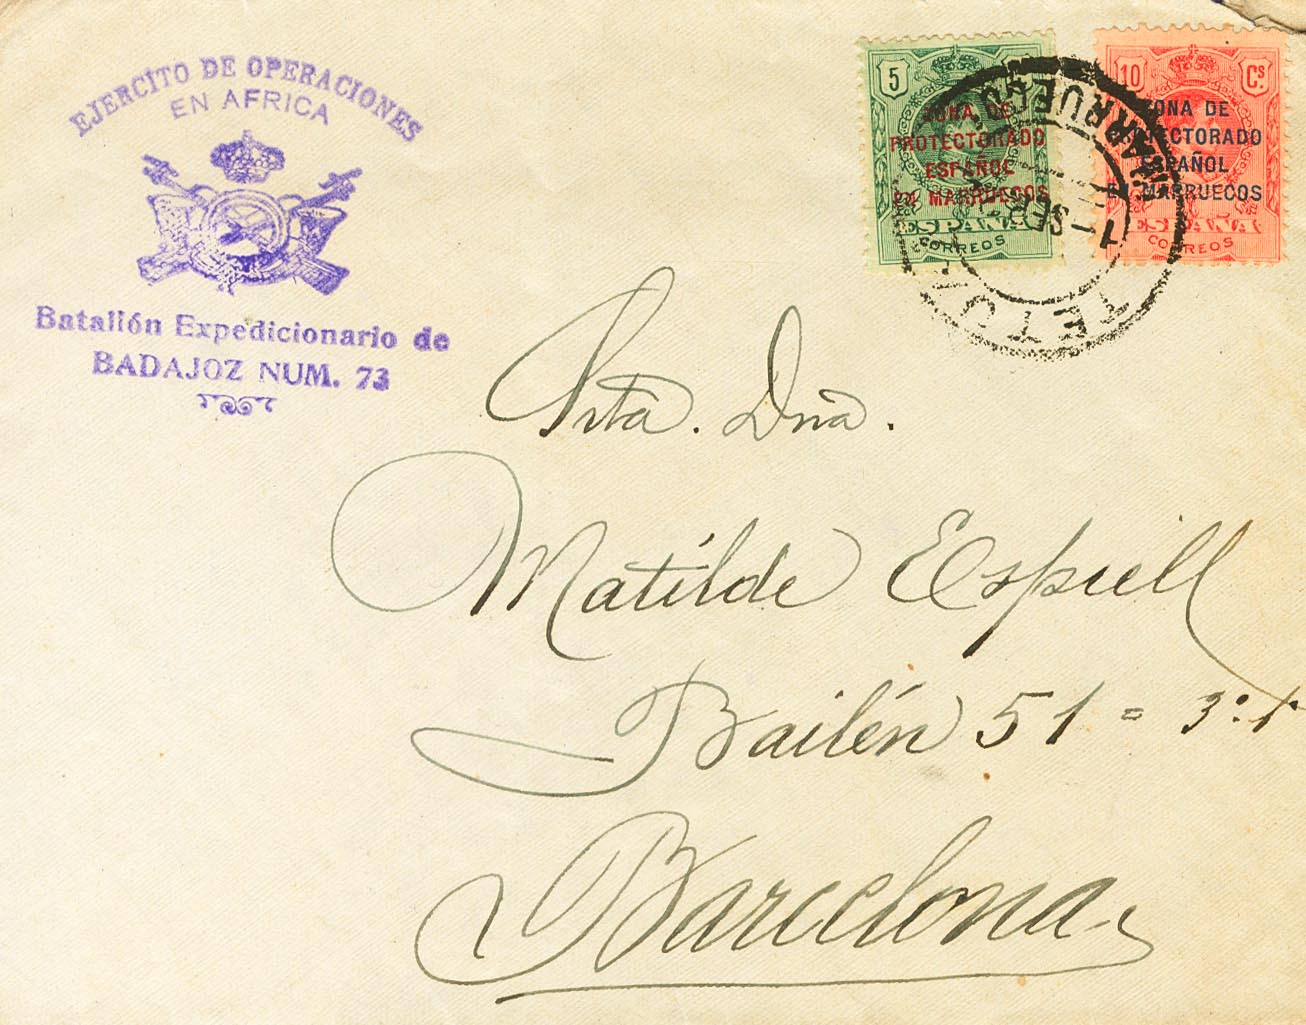 EJERCITO DE OPERACIONES
EN AFRICA
Batallón Expedicionario de
BADAJOZ NUM. 73
5
ZONA DE
PROTECTORADO
ESPAÑOL
EN MARRUECOS
ESPAÑA
CORREOS
10 Cs.
ZONA DE
PROTECTORADO
ESPAÑOL
EN MARRUECOS
ESPAÑA
CORREOS
MARRUECOS
1 - SEP
TETUAN
Srta. Dña.
Matilde Espiell
Bailén 51 = 3º. 1ª
Barcelona